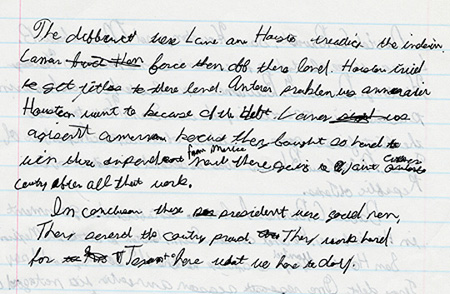 The diffrence were Lamar an Houston treatice the indain.
Lamar force then off there land. Houston tried
to get titles to there land. Anter problem was annexation
Houston want to because of the debt. Lamar was
agesent annexation because they fought so hard to
win there independent from Mexico now there going to joint
country after all that work.
In conclusion these president were good men,
They serered the country proud. They work hard
for Texas to here what we have today.